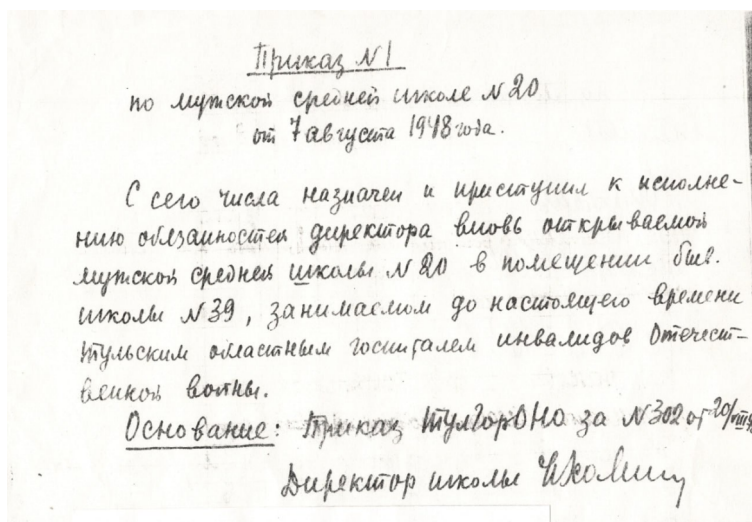 Приказ N1
по мужской средней школе N20
от 7 августа 1948 года.
С сего числа назначен и приступил к исполне-
нию обязанностей директора вновь открываемой
мужской средней школы N20 в помещении был.
школы N39, занимаемом до настоящего времени
Тульским областным госпиталем инвалидов Отечест-
венной войны.
Основание: Приказ ТулГорОНО за N302 от
Директор школы